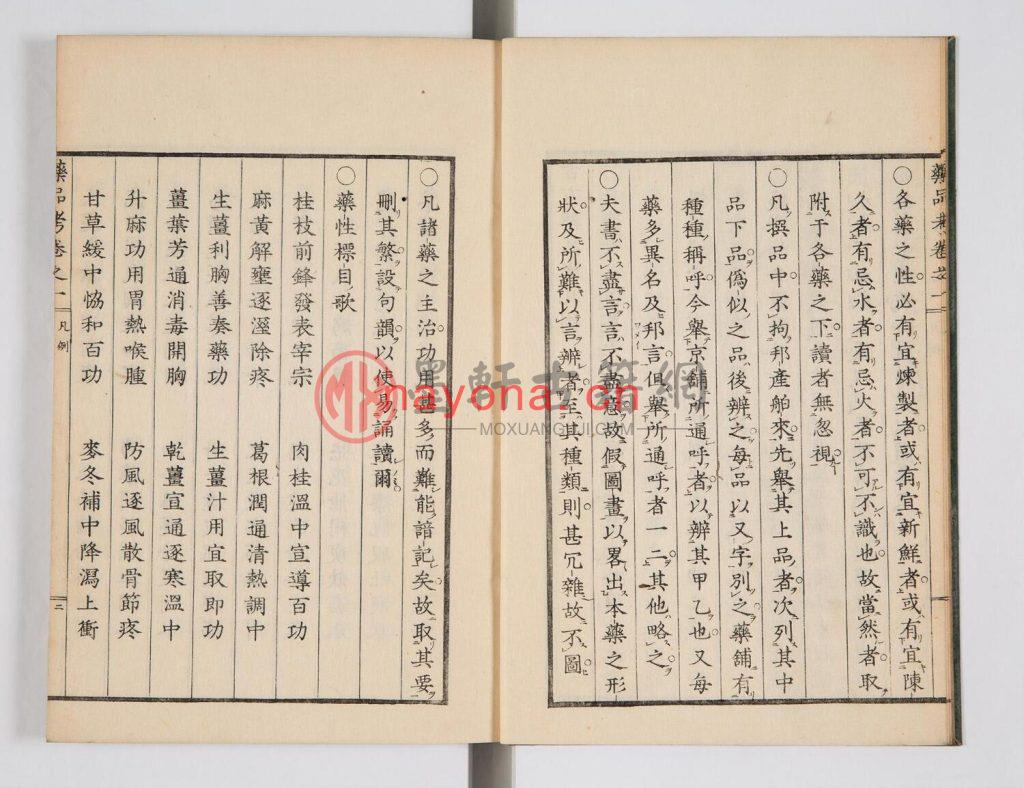 藥品考卷之一
〇各藥之性必有宜煉製者或有宜新鮮者或有宜陳
久者有忌水者有忌火者不可不識也故當然者取
附于各藥之下讀者無忽視
〇凡撰品中不拘邦產舶來先舉其上品者次列其中
品下品偽似之品後辨之每品以又字別之藥鋪有
種種稱呼今舉京鋪所通呼者以辨其甲乙也又每
藥多異名及邦言但舉所通呼者一二其他略之
〇夫書不盡言言不盡意故假圖畫以畧出本藥之形
狀及所難以言辨者至其種類則甚冗雜故不圖
〇凡諸藥之主治功用甚多而難能諳記矣故取其要
刪其繁設句韻以使易誦讀爾
〇藥性標目歌
桂枝前鋒發表宰宗　肉桂溫中宣導百功
麻黃解壅逐溼除疼　葛根潤通清熱調中
生薑利胸善奏藥功　生薑汁用宜取即功
薑葉芳通消毒開胸　乾薑宣通逐寒溫中
升麻功用胃熱喉腫　防風逐風散骨節疼
甘草緩中恊和百功　麥冬補中降瀉上衝
藥品考卷之一
凡例
二
墨軒古籍網
mayona.cn
MOXUANGUJI.COM